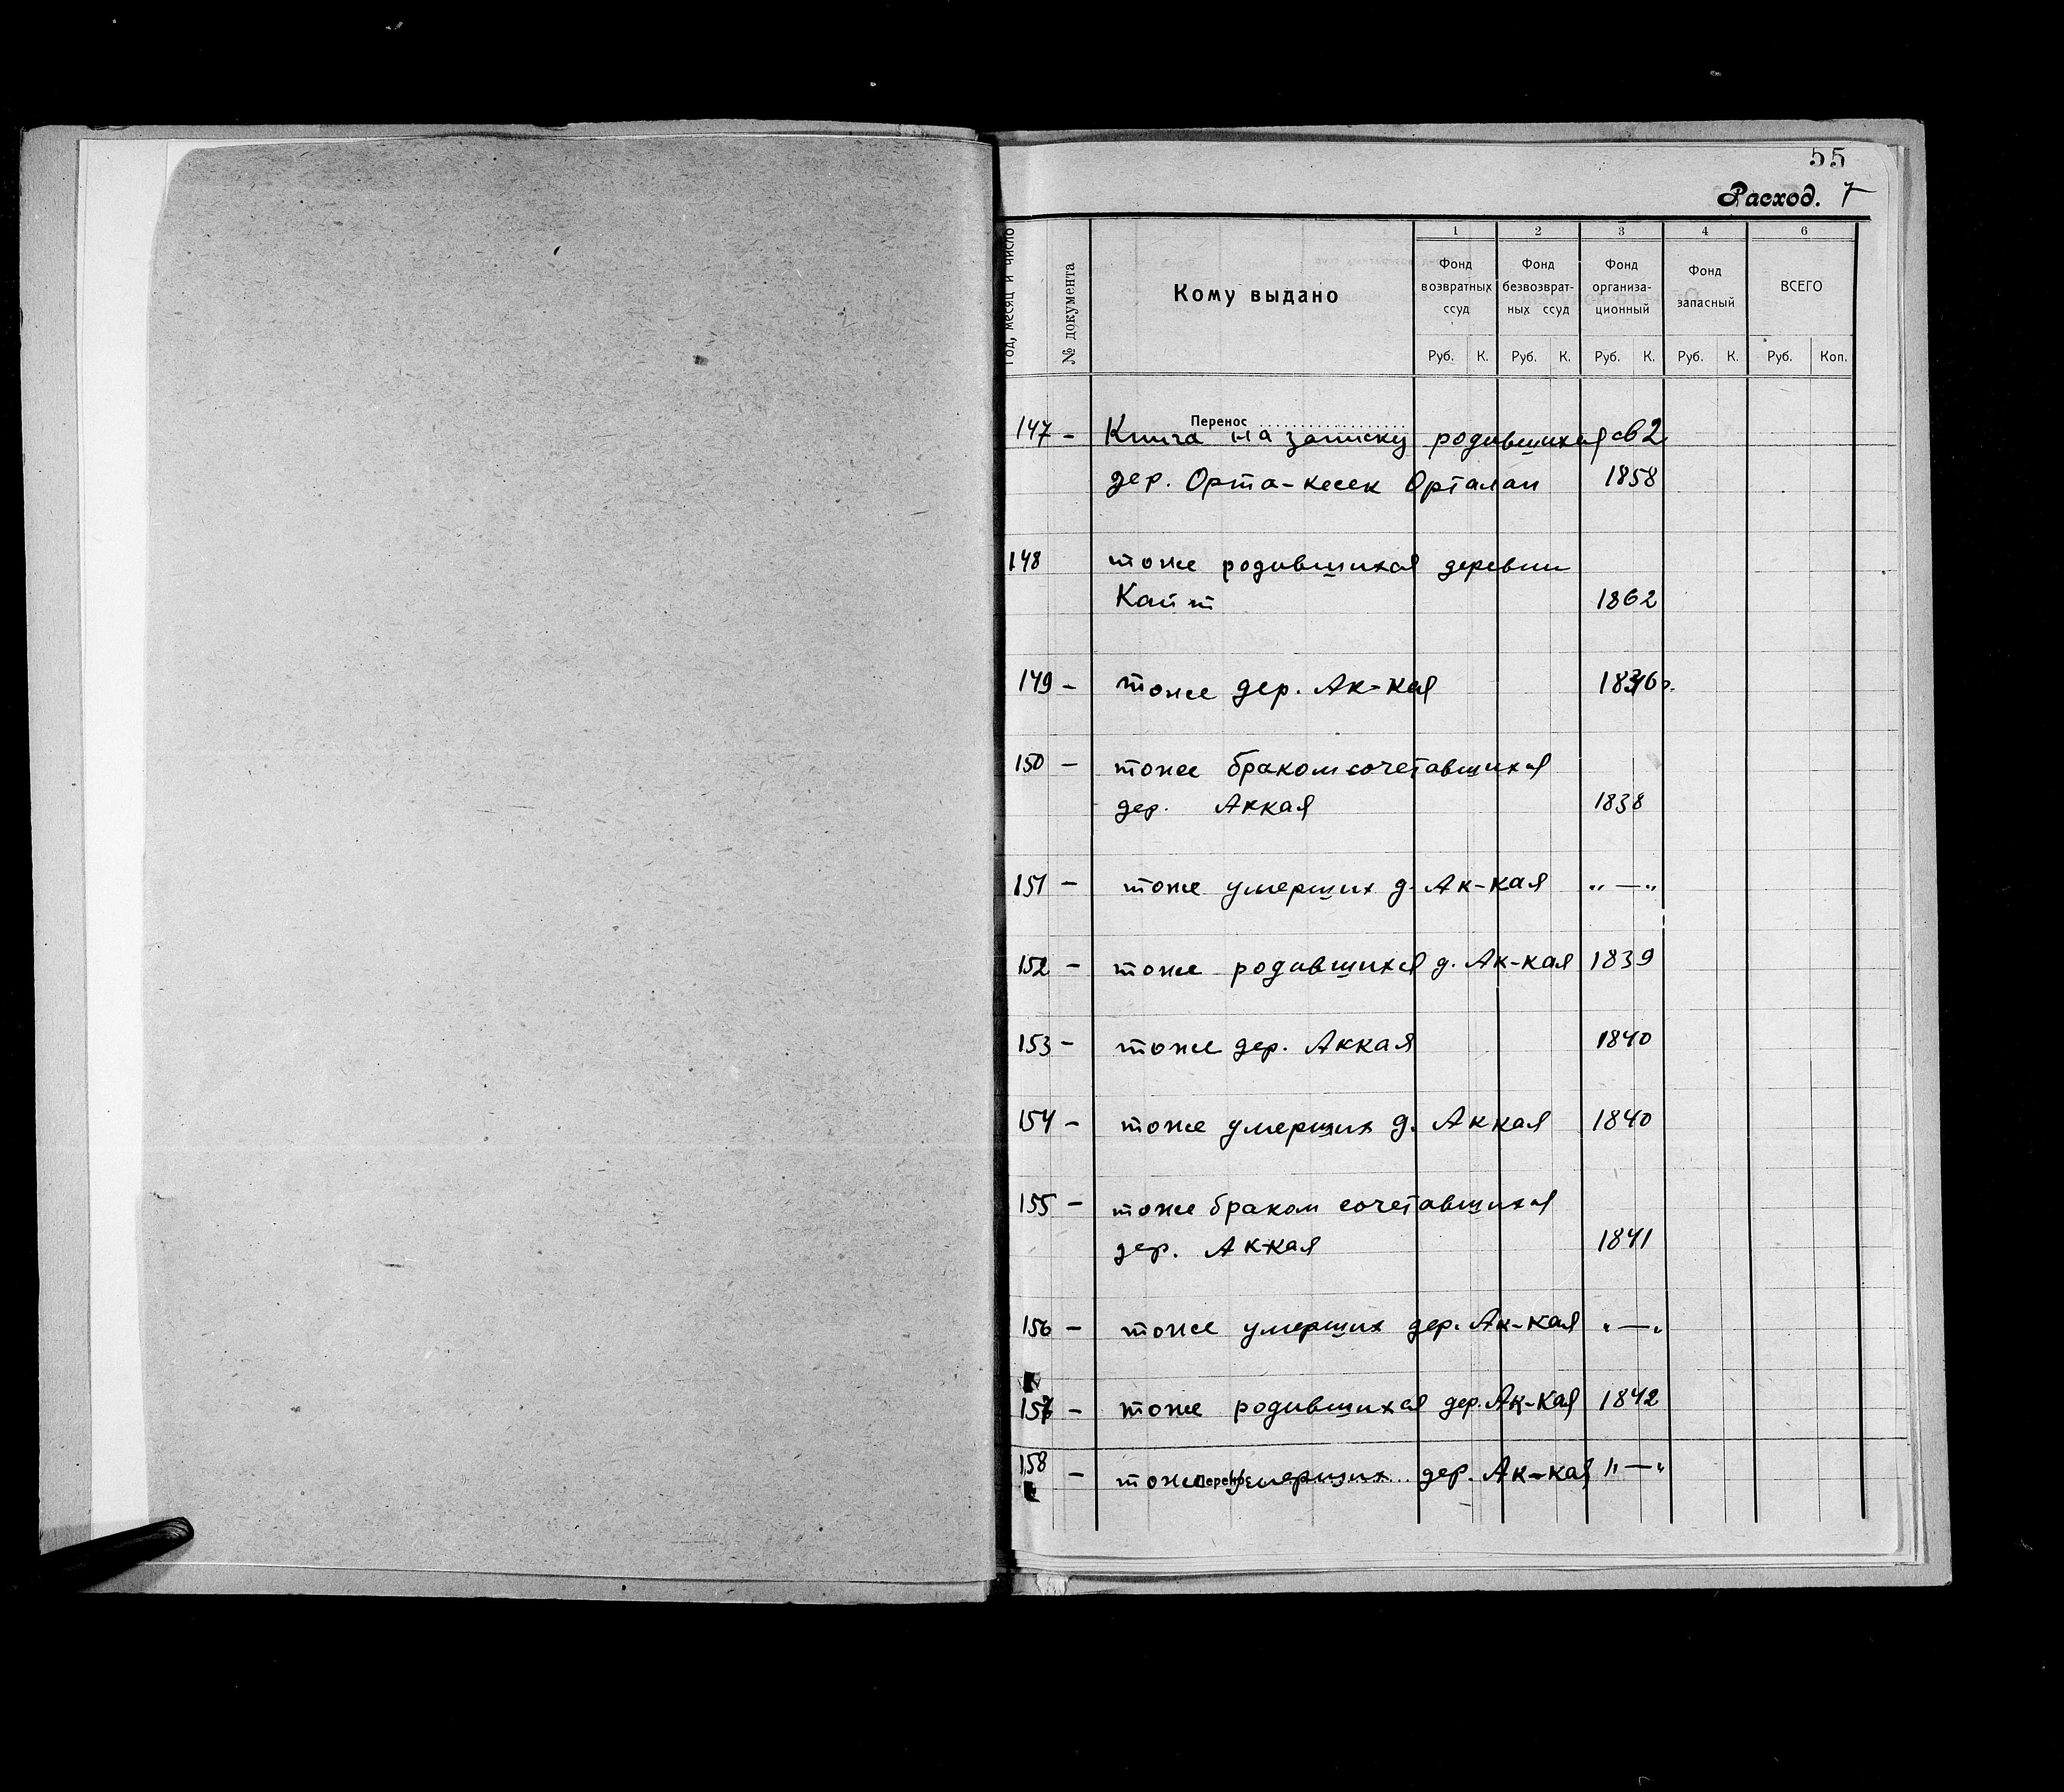 55
Расход. 7
Год, месяц и число
№ документа
Кому выдано
1 2 3 4 6
Фонд возвратных ссуд
Фонд безвозврат-ных ссуд
Фонд организа-ционный
Фонд запасный
ВСЕГО
Руб. К. Руб. К. Руб. К. Руб. К. Руб. Коп.
Перенос
147 – Книга на записку родившихся св 2
дер. Орта-кесек Орталан 1858
148 тоже родившихся деревни
1862
149 – тоже дер. Ак-кая
150 – тоже браком сочетавшихся
дер. Аккая 1838
151 – тоже умерших д. Ак-кая „ — „
152 – тоже родившихся д. Ак-кая 1839
153 – тоже дер. Аккая 1840
154 – тоже умерших д. Аккая 1840
155 – тоже браком сочетавшихся
дер. Аккая 1841
156 – тоже умерших дер. Ак-кая „ — „
157 – тоже родившихся дер. Ак-кая 1842
158 – тоже умерших дер. Ак-кая „ — „